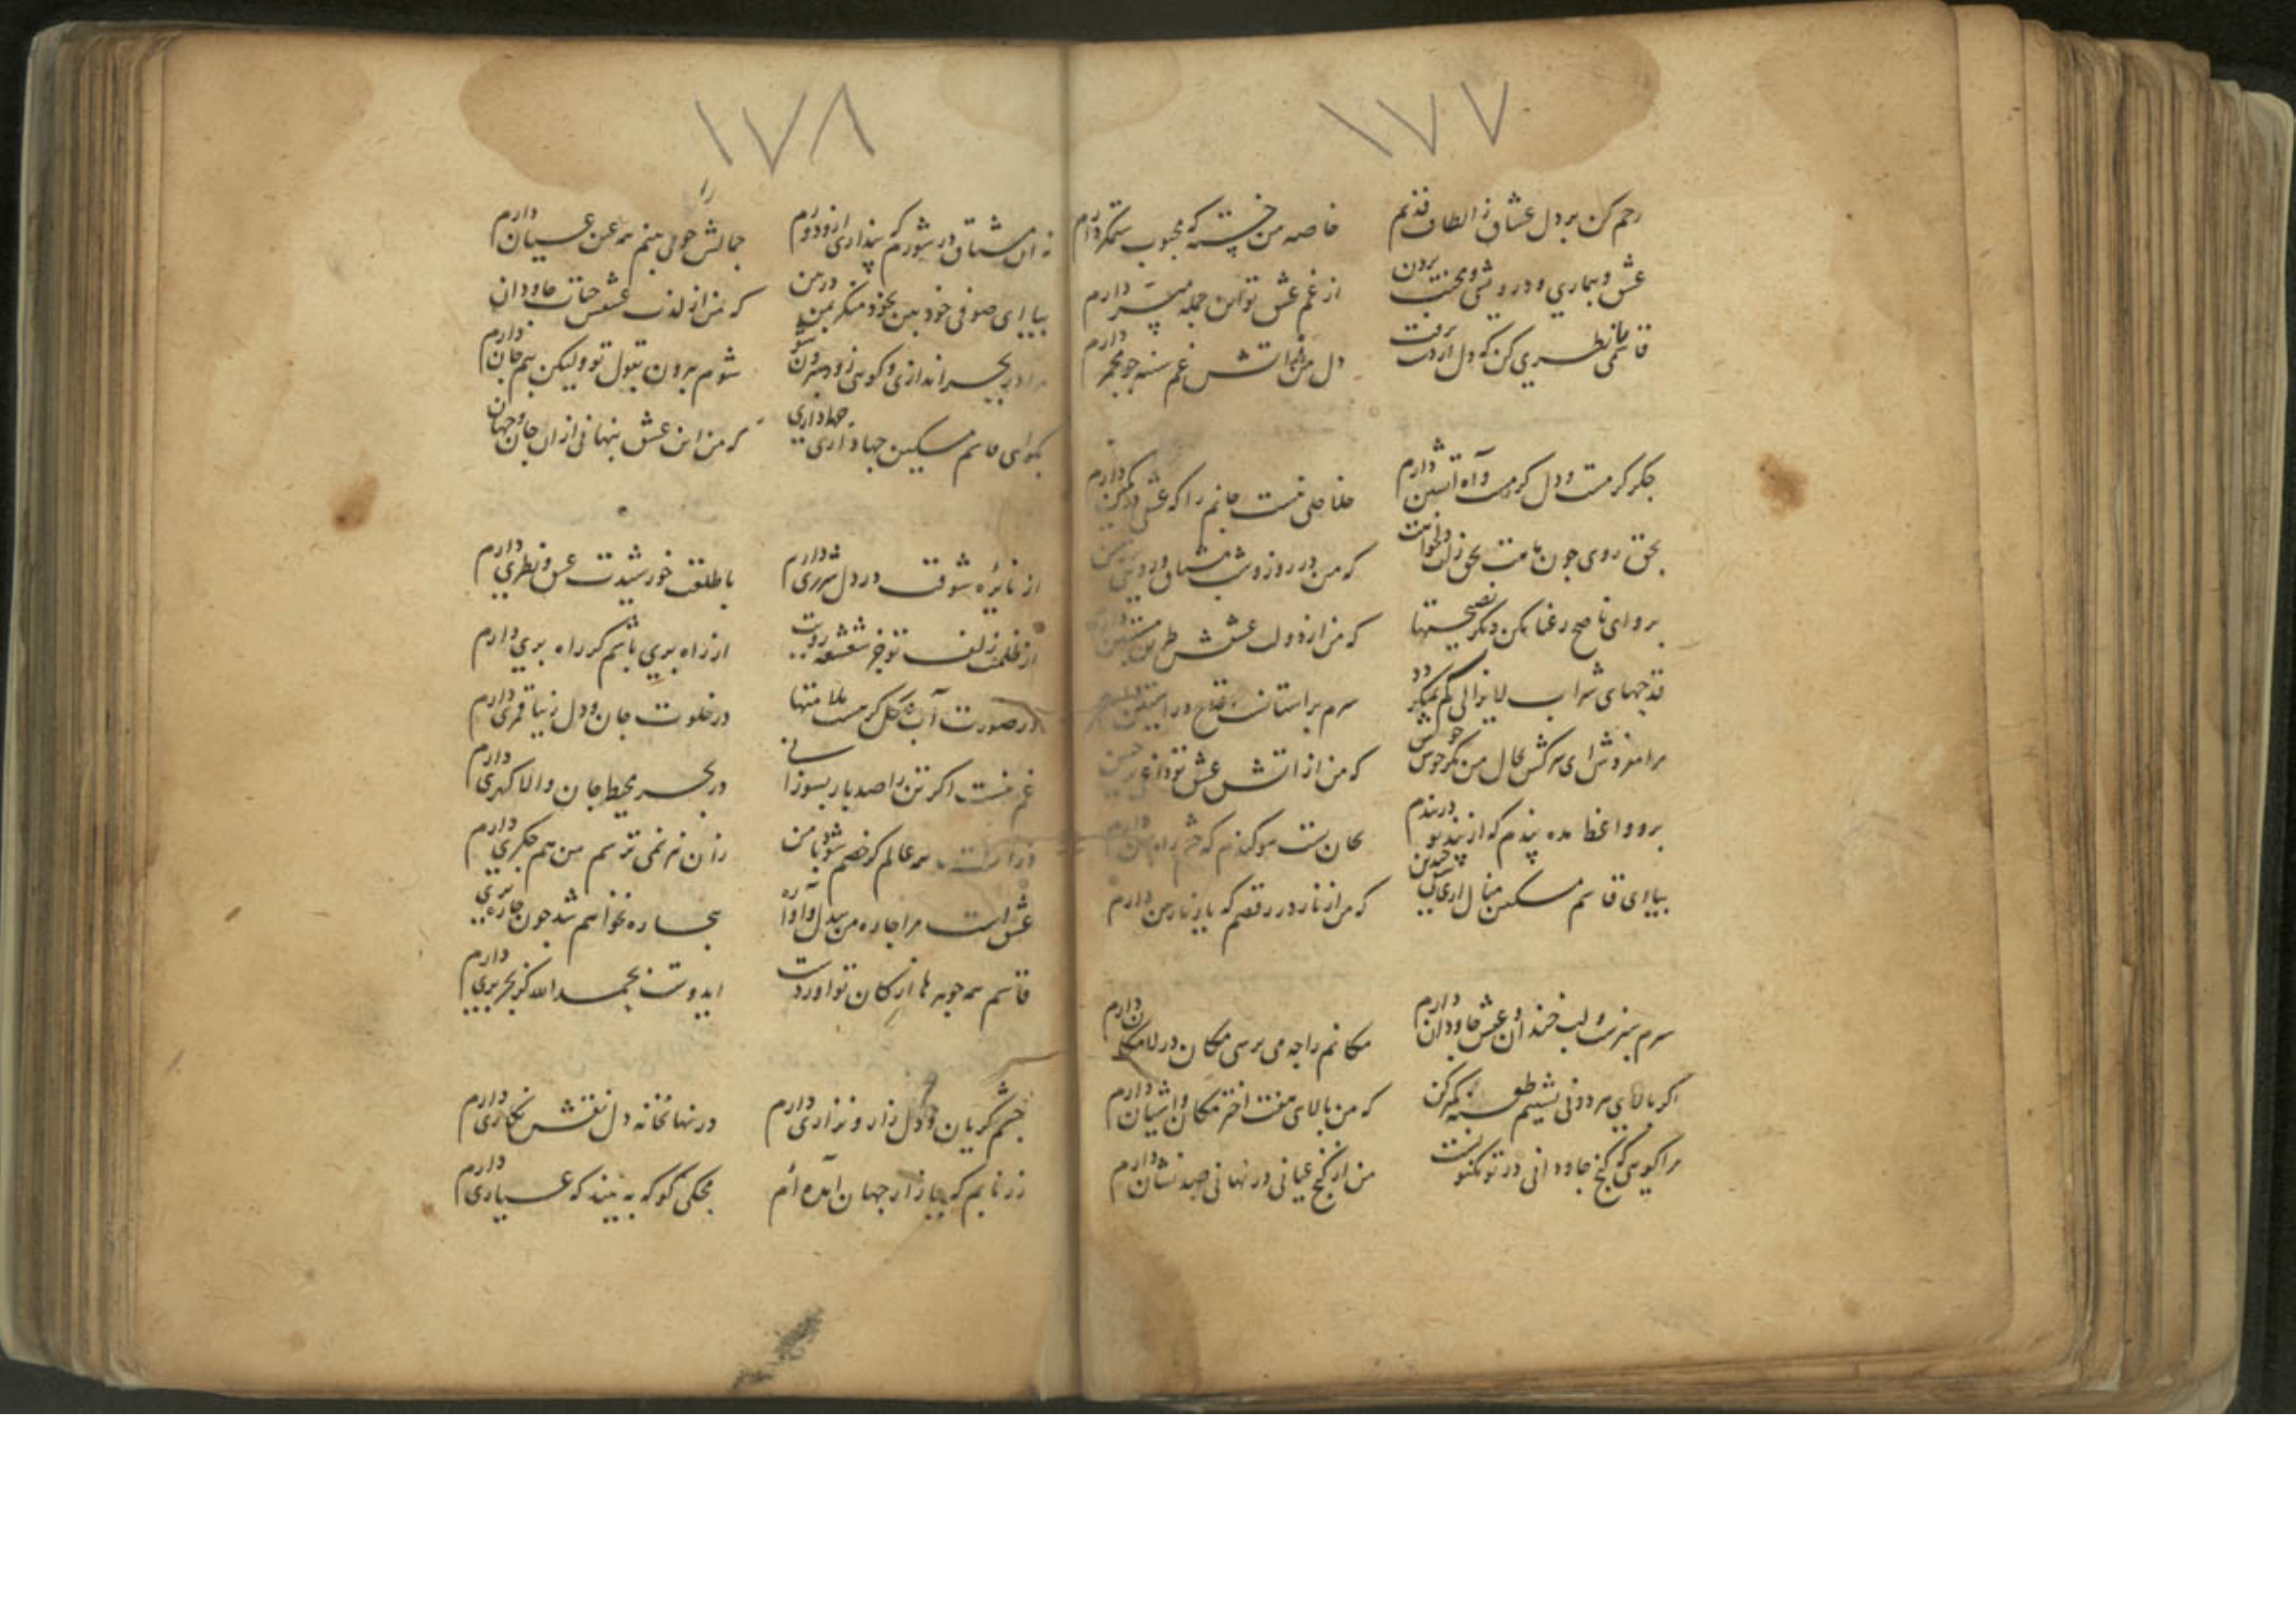 ۱۷۷
رحم کن بر دل عشاق ز الطاف قدیم
خاصه من خسته که محبوب ستمگر دارم
عشق و بیماری و درویشی و محنت بردن
از غم عشق تو این جمله میسر دارم
قاسمی را نظری کن که دل از دست برفت
دل من ز آتش غم سینه چو مجمر دارم
جگر گرمست و دل گرمست و آه آتشین دارم
خلاصی نیست جانم را که عشق در کمین دارم
بحق روی چون ماهت بحق زلف دلخواهت
که من در روز و شب مشتاق
برو ای ناصح رعنا مکن دیگر نصیحتها
که من از دولت عشقش طریق
قدحهای شراب لایزالی
سرم بر آستانست و قدح در آستین دارم
مرا مفروش ای سرکش بحال من نگر خوش خوش
که من از آتش عشق تو داغی بر جبین
برو واعظ مده پندم که از پند تو دربندم
بجانت سوگندم که چشم راه بین دارم
بیا ای قاسم مسکین منال
که من از نار در رقصم که یار نازنین دارم
سرم سبزست و لب خندان و عشق جاودان دارم
مکانم را چه می پرسی مکان در لامکان دارم
اگر بالای گردونی نشینم طعنه کمتر کن
که من بالای هفت اختر مکان و آشیان دارم
مرا گویی که گنج جاودانی در تو مکنونست
من از گنج عیانی در نهانی صد نشان دارم
۱۷۸
نه آن مشتاق در شورم که پنداری ازو دورم
جمالش را چو می بینم همه عین عیان دارم
بیا ای صوفی خود بین بخود منگر ببین در من
که من از لذت عشقش حیات جاودان
مرا در بحر اندازی و گویی زود بیرون شو
شوم بیرون بقول تو ولیکن بیم جان دارم
بگو ای قاسم مسکین چها داری چها داری
که من این عشق پنهانی از آن جان و جهان
از نایره شوقت در دل شرری دارم
با طلعت خورشیدت عشق و نظری دارم
از ظلمت زلف تو جز شعشعه رویت
از راه بری باشم گر راه بری دارم
در صورت آب و گل گر هست ملامتها
در خلوت جان و دل زیبا قمری دارم
غم نیست اگر تن را صد بار بسوزانی
در بحر محیط جان والا گهری دارم
همه عالم گر خصم شود با من
زان نیز نمی ترسم من هم جگری دارم
عشق است مرا چاره من بیدل و آواره
بیچاره نخواهم شد چون چاره بری
قاسم همه جوهرها از کان تو آوردست
ای دوست بحمدالله کز بحر بری دارم
چشم گریان و دل زار و نزاری دارم
در نهانخانه دل نقش نگاری دارم
زر نابم که ببازار جهان آمده ام
محکی گو که به بیند که عیاری دارم